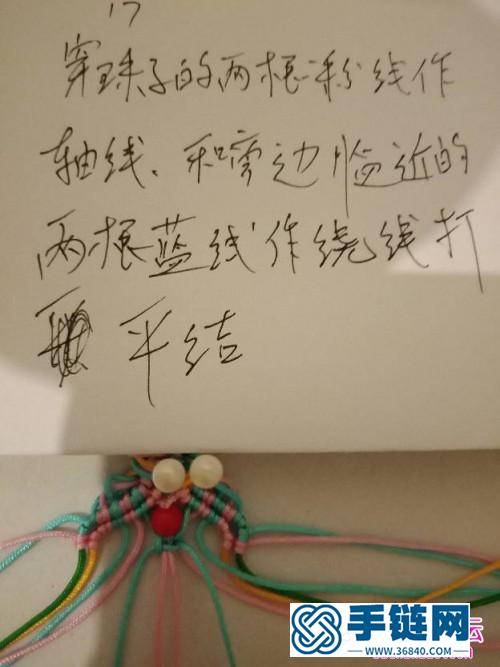 17
穿珠子的两根粉线作
轴线、和旁边临近的
两根蓝线作绕线打
平结
手链网
www.36840.com
坛